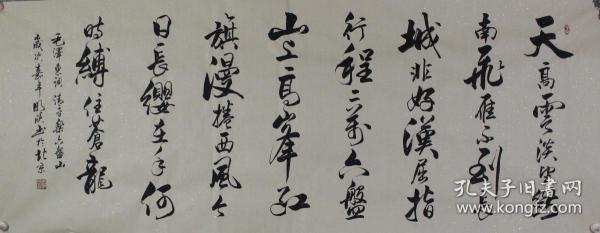 天高雲淡望斷
南飛雁不到長
城非好漢屈指
行程二萬六盤
山上高峰紅
旗漫捲西風今
日長纓在手何
時縛住蒼龍
毛澤東詞清平樂六盤山
歲次嘉平書於北京
孔夫子旧書網
www.kongfz.com